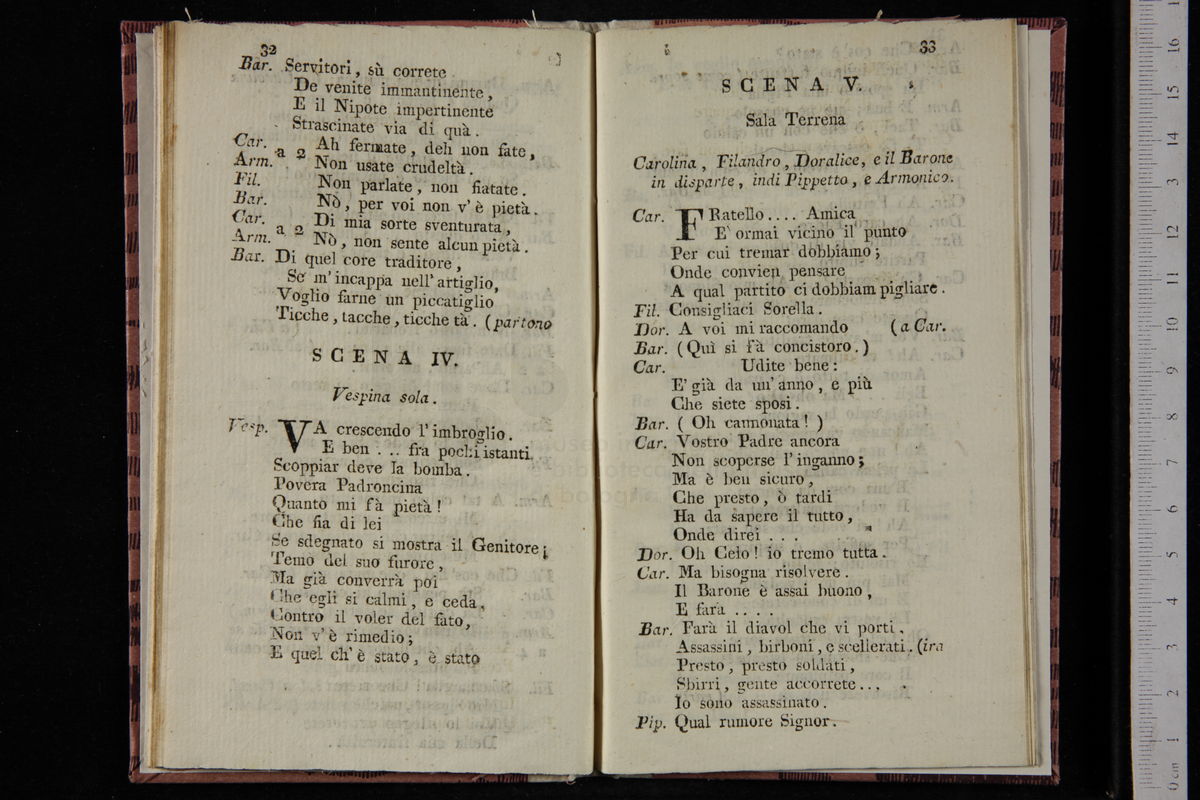 32
Bar. Servitori, sù correte
De venite immantinente,
E il Nipote impertinente
Strascinate via di quà.
Car. a 2 Ah fermate, deh non fate,
Arm. Non usate crudeltà.
Fil. Non parlate, non fiatate.
Bar. Nò, per voi non v'è pietà.
Car. a 2 Di mia sorte sventurata,
Arm. Nò, non sente alcun pietà.
Bar. Di quel core traditore,
Se m'incappa nell'artiglio,
Voglio farne un piccatiglio
Ticche, tacche, ticche tà. (partono
SCENA IV.
Vespina sola.
Vesp. VA crescendo l'imbroglio.
E ben . .. fra pochi istanti
Scoppiar deve la bomba.
Povera Padroncina
Quanto mi fà pietà!
Che fia di lei
Se sdegnato si mostra il Genitore;
Temo del suo furore,
Ma già converrà poi
Che egli si calmi, e ceda,
Contro il voler del fato,
Non v'è rimedio;
E quel ch'è stato, è stato
33
SCENA V.
Sala Terrena
Carolina, Filandro, Doralice, e il Barone
in disparte, indi Pippetto, e Armonico.
Car. FRatello.... Amica
E' ormai vicino il punto
Per cui tremar dobbiamo;
Onde convien pensare
A qual partito ci dobbiam pigliare.
Fil. Consigliaci Sorella.
Dor. A voi mi raccomando (a Car.
Bar. (Quì si fà concistoro.)
Car. Udite bene:
E' già da un'anno, e più
Che siete sposi.
Bar. ( Oh cannonata! )
Car. Vostro Padre ancora
Non scoperse l'inganno;
Ma è ben sicuro,
Che presto, ò tardi
Ha da sapere il tutto,
Onde direi . . .
Dor. Oh Celo! io tremo tutta.
Car. Ma bisogna risolvere.
Il Barone è assai buono,
E farà ....
Bar. Farà il diavol che vi porti,
Assassini, birboni, e scellerati. (ira
Presto, presto soldati,
Sbirri, gente accorrete...
Io sono assassinato.
Pip. Qual rumore Signor.